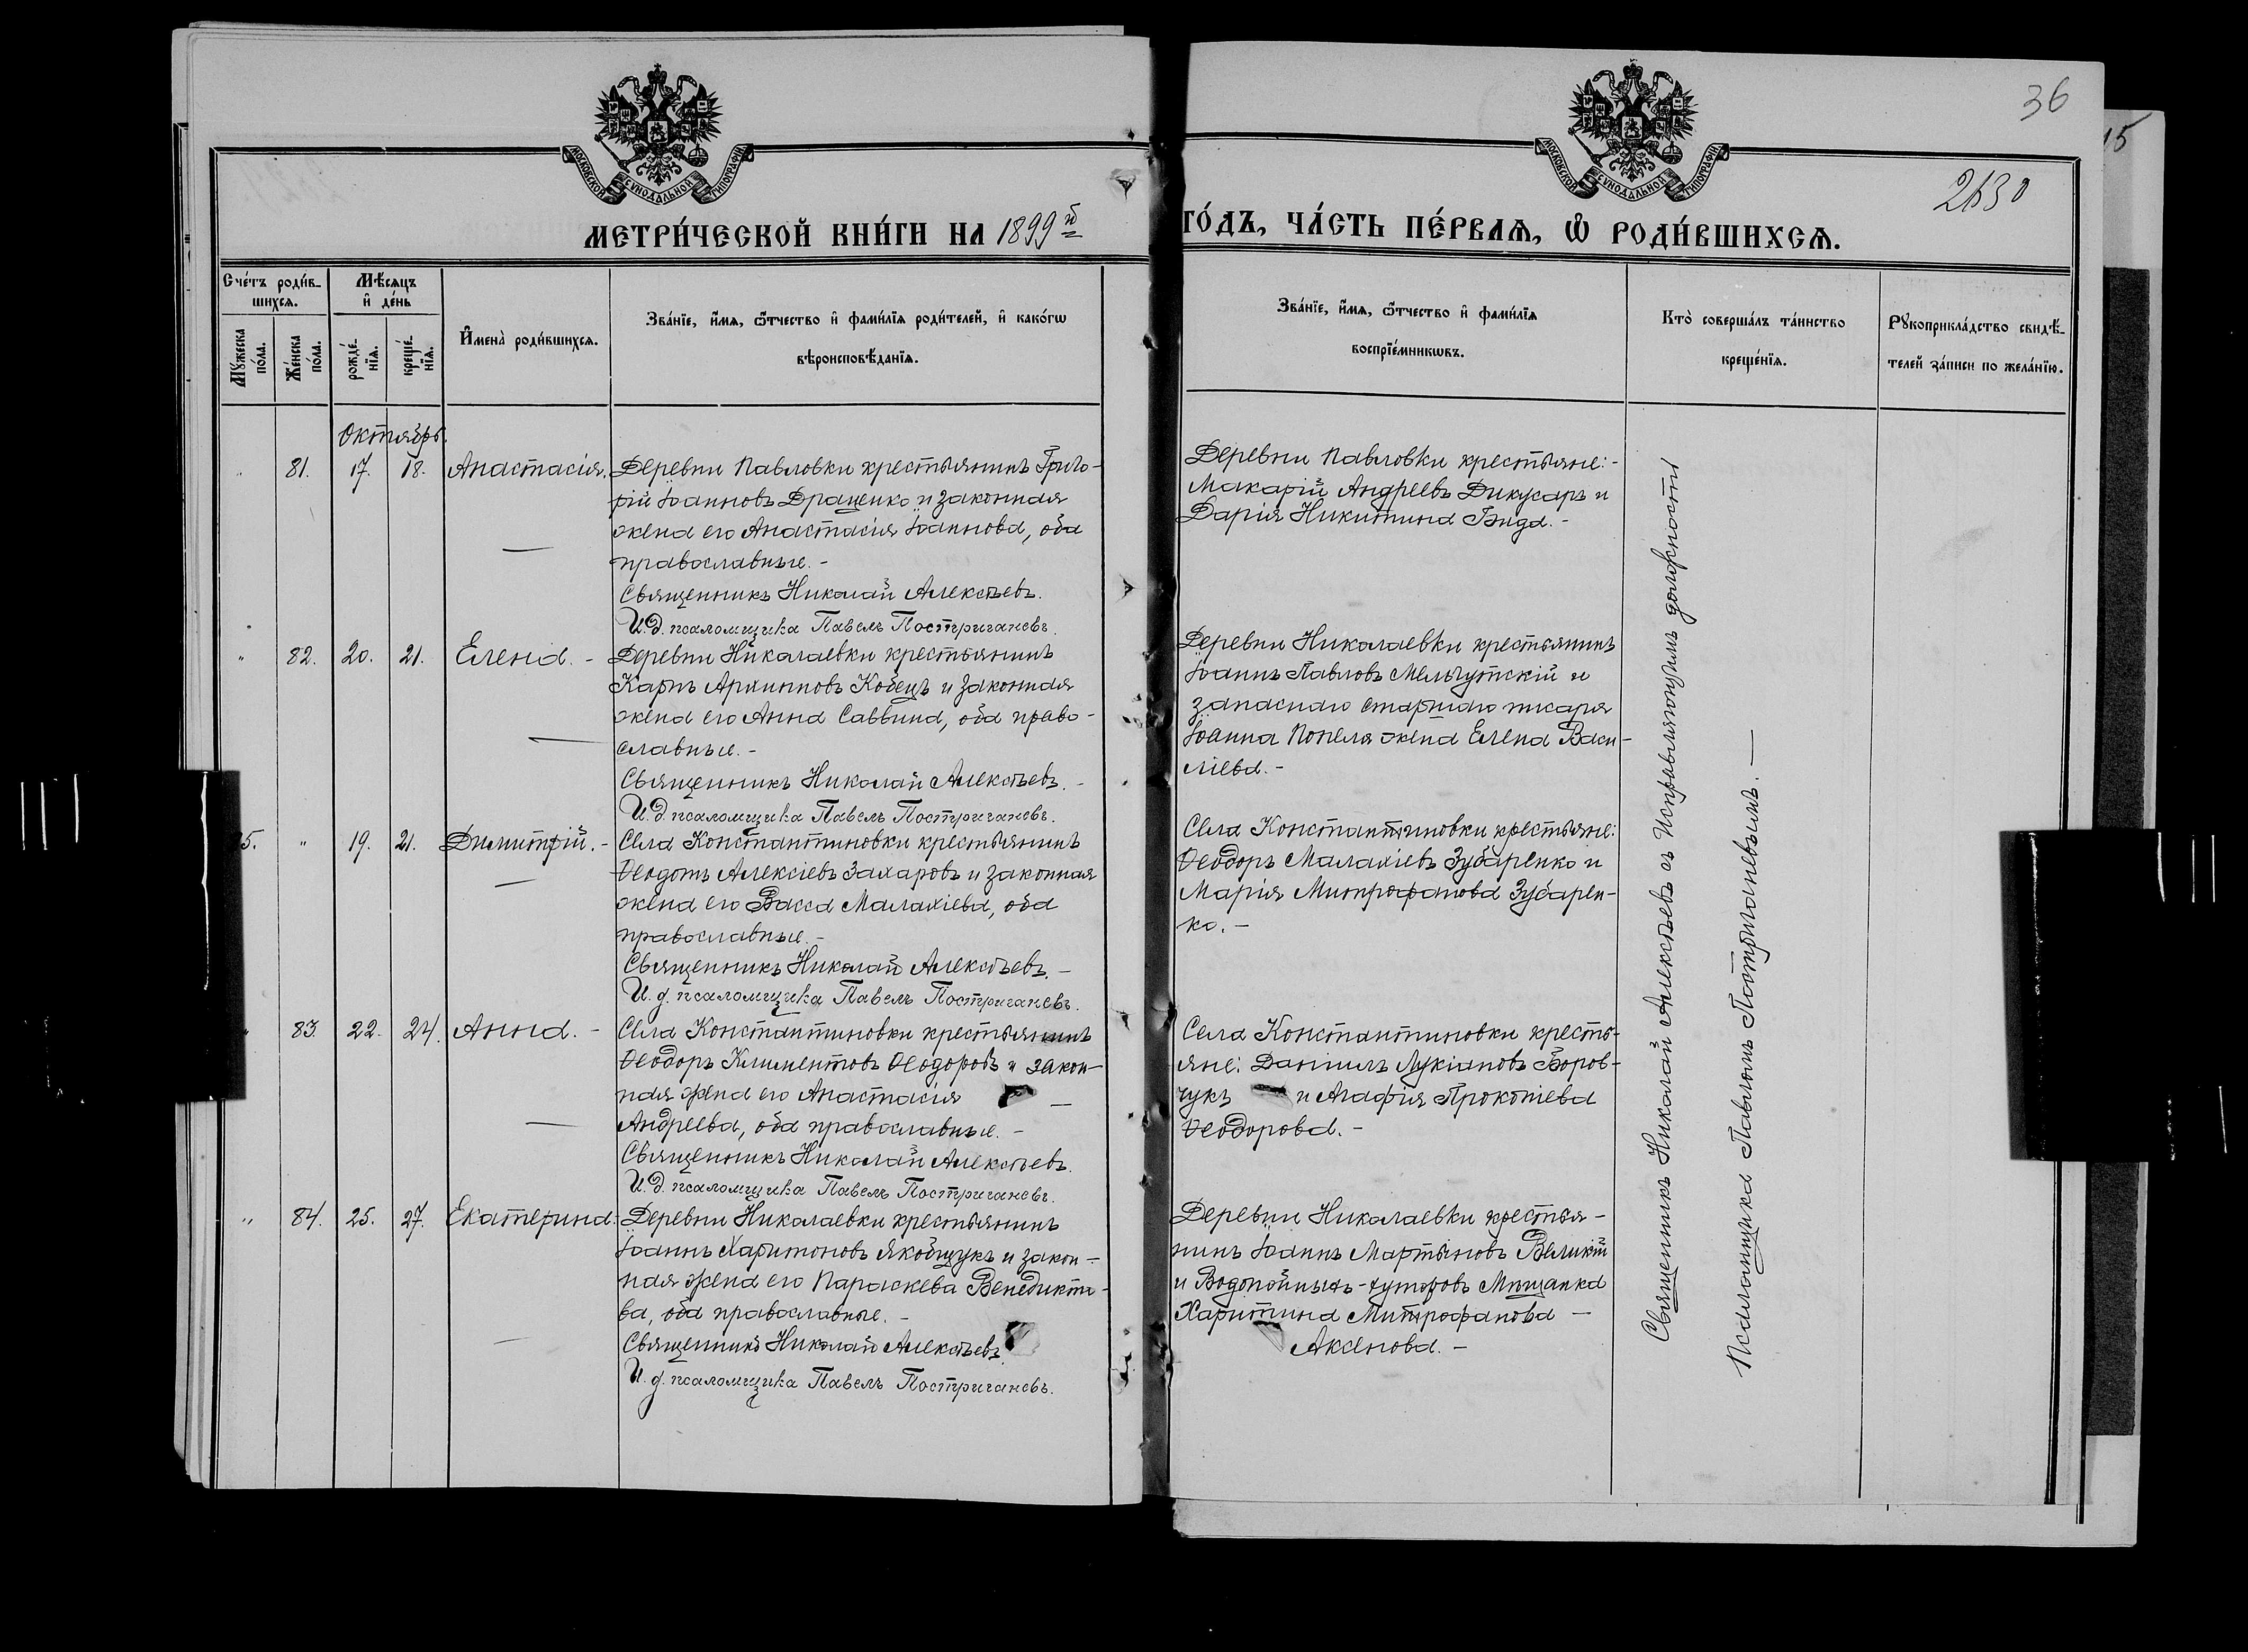 36
15
2630
МОСКОВСКОЙ СУНОДАЛЬНОЙ ТИПОГРАФІИ
МОСКОВСКОЙ СУНОДАЛЬНОЙ ТИПОГРАФІИ
МЕТРИ́ЧЕСКОЙ КНИ́ГИ НА 1899й
ГО́ДЪ, ЧА́СТЬ ПЕ́РВАѦ, Ѡ҆ РОДИ́ВШИХСѦ.
Сче́тъ роди́в-
шихсѧ.
Мꙋ́жеска по́ла.
Же́нска по́ла.
Мѣ́сѧцъ
и҆ де́нь
рожде́-
нїѧ.
креще́-
нїѧ.
И҆мена̀ роди́вшихсѧ.
Зва́нїе, и҆́мѧ, ѻ҆́тчество и҆ фами́лїѧ роди́телей, и҆ како́гѡ
вѣроисповѣ́данїѧ.
Зва́нїе, и҆́мѧ, ѻ҆́тчество и҆ фами́лїѧ
воспрїе́мникѡвъ.
Кто̀ соверша́лъ та́инство
креще́нїѧ.
Рꙋкоприкла́дство свидѣ́-
телей за́писи по жела́нїю.
Октябрь.
" 81. 17. 18. Анастасія. Деревни Павловки крестьянинъ Григо-
рій Іоанновъ Драценко и законная
жена его Анастасія Іоаннова, оба
православные. -
Священникъ Николай Алексѣевъ.
И.д. псаломщика Павелъ Постригачевъ.
Деревни Павловки крестьяне: -
Макарій Андреевъ Дикусаръ и
Дарія Никитина Бида. -
" 82. 20. 21. Елена. - Деревни Николаевки крестьянинъ
Карпъ Архиповъ Кобецъ и законная
жена его Анна Саввина, оба право-
славные. -
Священникъ Николай Алексѣевъ. -
И.д. псаломщика Павелъ Постригачевъ.
Деревни Николаевки крестьянинъ
Іоаннъ Павловъ Мельгутскій и
запаснаго старшаго писаря
Іоанна Попеля жена Елена Васи-
ліева. -
5. " 19. 21. Димитрій. - Села Константиновки крестьянинъ
Ѳеодотъ Алексіевъ Захаровъ и законная
жена его Васса Малахіева, оба
православные. -
Священникъ Николай Алексѣевъ. -
И.д. псаломщика Павелъ Постригачевъ.
Села Константиновки крестьяне:
Ѳеодоръ Малахіевъ Зубаренко и
Марія Митрофанова Зубарен-
ко. -
" 83. 22. 24. Анна. - Села Константиновки крестьянинъ
Ѳеодоръ Климентовъ Ѳеодоровъ и закон-
ная жена его Анастасія -
Андреева, оба православные. -
Священникъ Николай Алексѣевъ.
И.д. псаломщика Павелъ Постригачевъ.
Села Константиновки кресть-
яне: Даніилъ Лукіановъ Боров-
чукъ и Агафія Прокопіева
Ѳеодорова. -
" 84. 25. 27. Екатерина. - Деревни Николаевки крестьянинъ
Іоаннъ Харитоновъ Якобчукъ и закон-
ная жена его Параскева Венедикто-
ва, оба православные. -
Священникъ Николай Алексѣевъ.
И.д. псаломщика Павелъ Постригачевъ.
Деревни Николаевки крестья-
нинъ Іоаннъ Мартыновъ Великій
и Водопойныхъ-хуторовъ Мѣщанка
Харитина Митрофанова -
Аксенова. -
Священникъ Николай Алексѣевъ съ Исправляющимъ должность
Псаломщика Павломъ Постригачевымъ. -